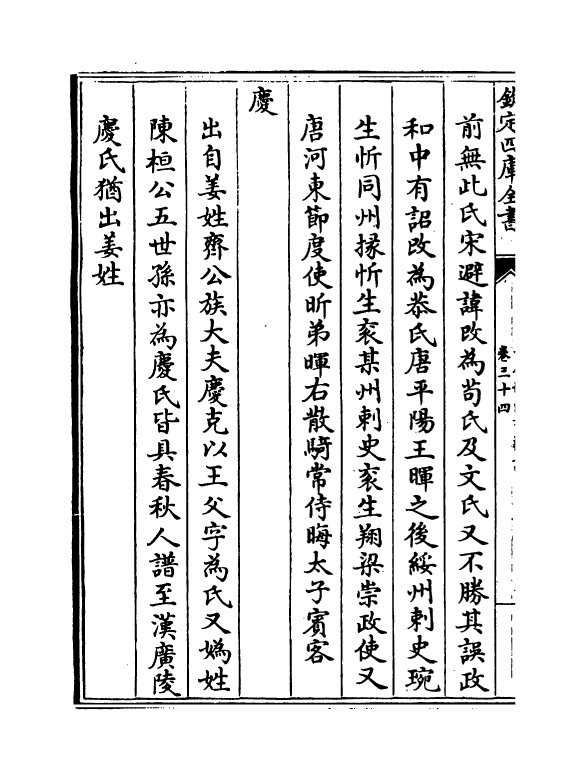 欽定四庫全書
卷三十四
前無此氏宋避諱改為茍氏及文氏又不勝其誤政
和中有詔改為恭氏唐平陽王暉之後綏州刺史琬
生忻同州掾忻生衮某州刺史衮生翔梁崇政使又
唐河東節度使昕弟暉右散騎常侍晦太子賓客
慶
出自姜姓齊公族大夫慶克以王父字為氏又媯姓
陳桓公五世孫亦為慶氏皆具春秋人譜至漢廣陵
慶氏猶出姜姓